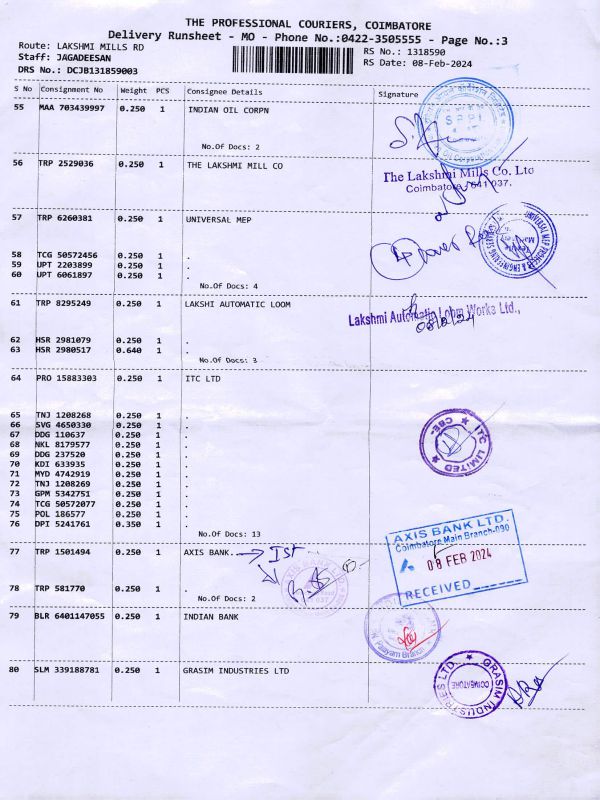 THE PROFESSIONAL COURIERS, COIMBATORE
Delivery Runsheet - MO - Phone No.:0422-3505555 - Page No.:3
Route: LAKSHMI MILLS RD
RS No.: 1318590
Staff: JAGADEESAN
RS Date: 08-Feb-2024
DRS No.: DCJB131859003
S No Consignment No Weight PCS Consignee Details Signature
55 MAA 703439997 0.250 1 INDIAN OIL CORPN
SPPI
No.Of Docs: 2
56 TRP 2529036 0.250 1 THE LAKSHMI MILL CO
The Lakshmi Mills Co. Ltd
Coimbatore - 641 037.
57 TRP 6260381 0.250 1 UNIVERSAL MEP
58 TCG 50572456 0.250 1 .
59 UPT 2203899 0.250 1 .
60 UPT 6061897 0.250 1 .
No.Of Docs: 4
61 TRP 8295249 0.250 1 LAKSHI AUTOMATIC LOOM
Lakshmi Automatic Loom Works Ltd.,
08/2/24
62 HSR 2981079 0.250 1 .
63 HSR 2980517 0.640 1 .
No.Of Docs: 3
64 PRO 15883303 0.250 1 ITC LTD
65 TNJ 1208268 0.250 1 .
66 SVG 4650330 0.250 1 .
67 DDG 110637 0.250 1 .
68 NKL 8179577 0.250 1 .
69 DDG 237520 0.250 1 .
70 KDI 633935 0.250 1 .
71 MYD 4742919 0.250 1 .
72 TNJ 1208269 0.250 1 .
73 GPM 5342751 0.250 1 .
74 TCG 50572077 0.250 1 .
75 POL 186577 0.250 1 .
76 DPI 5241761 0.350 1 .
ITC LIMITED
CBE-
No.Of Docs: 13
AXIS BANK LTD.
Coimbatore Main Branch-090
08 FEB 2024
RECEIVED
77 TRP 1501494 0.250 1 AXIS BANK.
Ist
78 TRP 581770 0.250 1 .
No.Of Docs: 2
79 BLR 6401147055 0.250 1 INDIAN BANK
80 SLM 339188781 0.250 1 GRASIM INDUSTRIES LTD
GRASIM INDUSTRIES LTD.
COIMBATORE